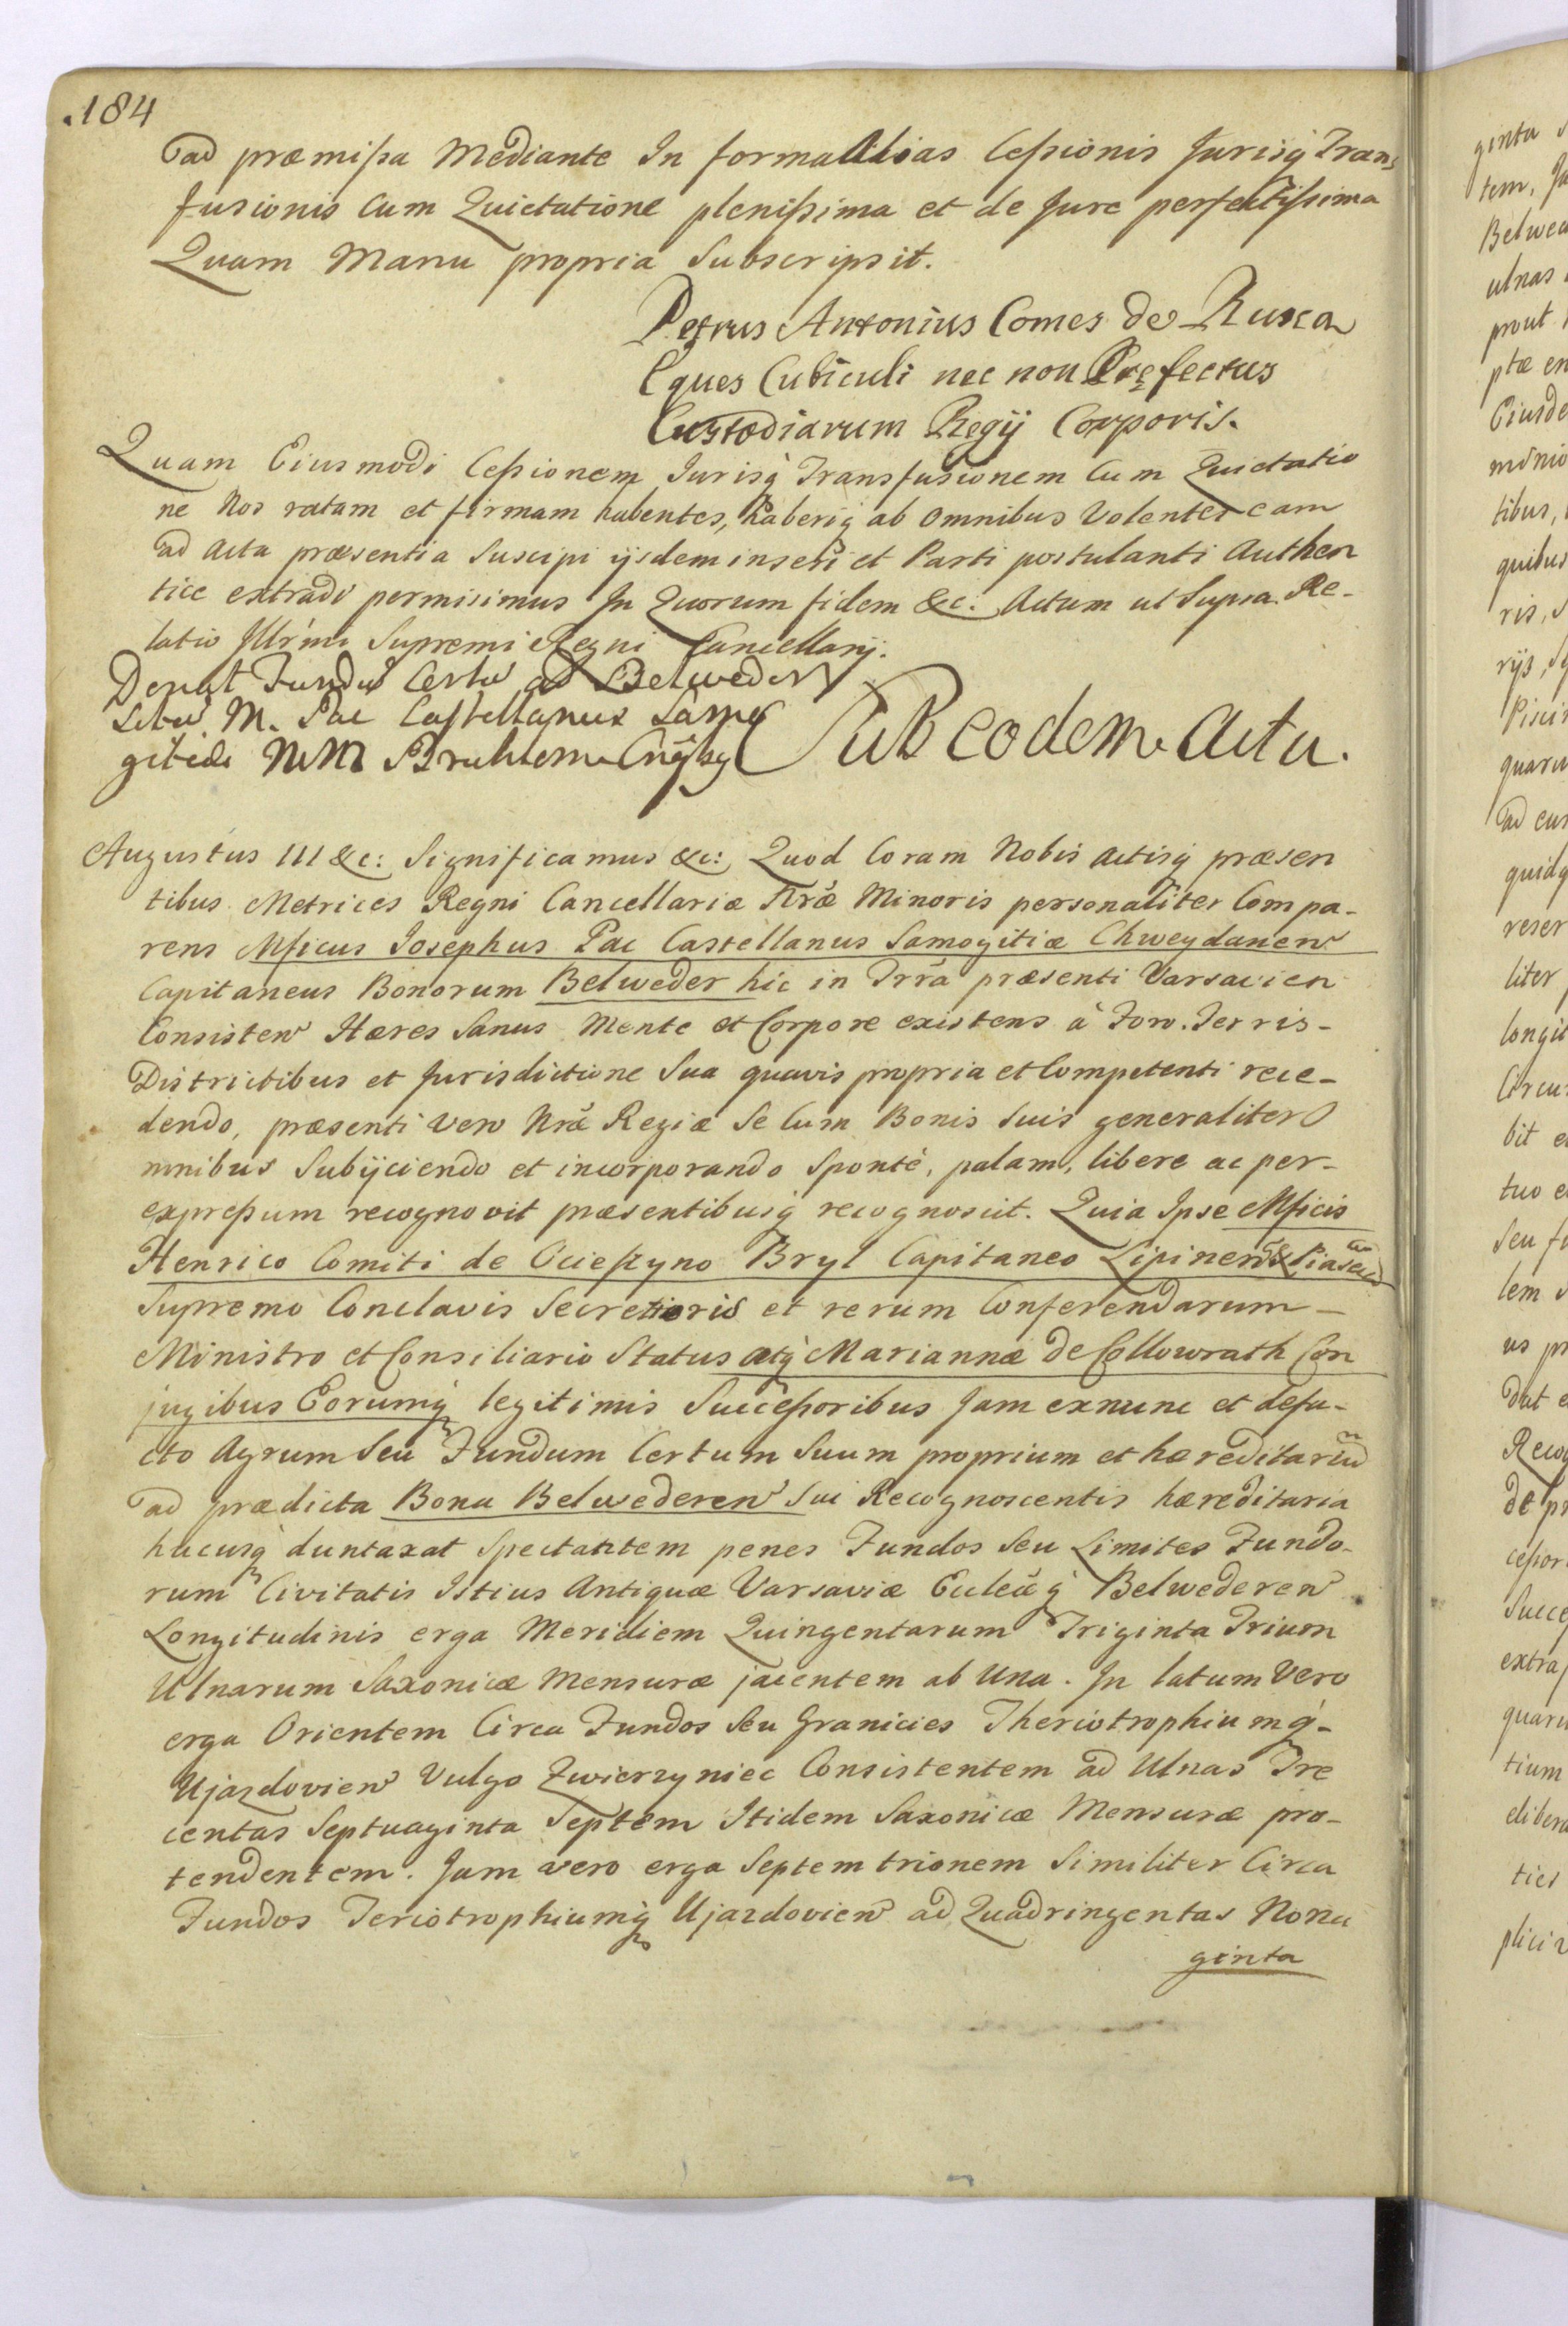 184
ad præmissa Mediante In forma Alias Cessionis Jurisq Trans
fusionis Cum Quietatione plenissima et de Jure perfectissima
Quam Manu propria Subscripsit.
Petrus Antonius Comes de Rusca
Eques Cubiculi nec non Præfectus
Custodiarum Regij Corporis.
Quam Eiusmodi Cessionem Jurisq Transfusionem Cum Quietatio
ne Nos ratam et firmam habentes, haberiq ab Omnibus Volentes eam
ad Acta præsentia Suscipi ijsdem inseri et Parti postulanti Authen
tice extradi permisimus In Quorum fidem &c: Actum ut Supra. Re-
latio Illr̃mi Supremi Regni Cancellarij.
Donat Fundũ Certũ ad Belweder
M. Pac Castellanus Samo
gitiæ MM Bruhlom
Sub eodem Actu.
Augustus III &c: Significamus &c: Quod Coram Nobis Actisq præsen
tibus Metrices Regni Cancellariæ Nr̃æ Minoris personaliter Compa-
rens Mficus Josephus Pac Castellanus Samogitiæ Chweydanen
Capitaneus Bonorum Belweder hic in Trr̃a præsenti Varsavien
Consisten Hæres Sanus Mente et Corpore existens à Foro. Terris-
Districtibus et Jurisdictione Sua quavis propria et Competenti rece-
dendo, præsenti vero Nr̃æ Regiæ Se Cum Bonis Suis generaliter O
mnibus Subijciendo et incorporando Sponté, palam, libere ac per-
expressum recognovit præsentibusq recognoscit. Quia Ipse Mficis
Henrico Comiti de Ocieszyno Bryl Capitaneo Lipinen & Piasecen
Supremo Conclavis Secretioris et rerum Conferendarum-
Ministro et Consiliario Status atq Mariannæ de Collowrath Con
jugibus Eorumq legitimis Successoribus Jam exnunc et defa-
cto Agrum Seu Fundum Certum Suum proprium et hæreditariũ
ad prædicta Bona Belwederen Sui Recognoscentis hæreditaria
hucusq duntaxat Spectantem penes Fundos Seu Limites Fundo-
rum Civitatis Istius Antiquæ Varsaviæ Eccleæq Belwederen
Longitudinis erga Meridiem Quingentarum Triginta Trium
Ulnarum Saxonicæ Mensuræ jacentem ab Una. In latum Vero
erga Orientem Circa Fundos Seu Granicies Theriotrophiumq-
Ujazdovien Vulgo Zwierzyniec Consistentem ad Ulnas Tre
centas Septuaginta Septem Itidem Saxonicæ Mensuræ pro-
tendentem. Jam vero erga Septemtrionem Similiter Circa
Fundos Teriotrophiumq Ujazdovien ad Quadringentas Nona
ginta